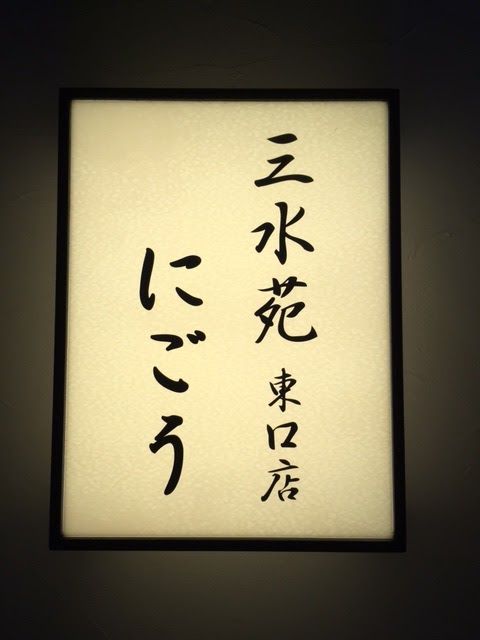 三水苑 東口店
にごう